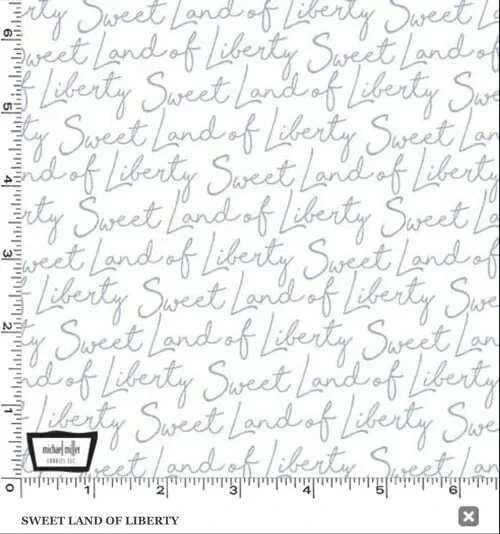 rty Sweet Land of Liberty Sweet L
6
weet Land of Liberty Sweet Land of
f Liberty Sweet Land of Liberty Swe
5
ty Sweet Land of Liberty Sweet Lan
nd of Liberty Sweet Land of Liberty
4
rty Sweet Land of Liberty Sweet La
weet Land of Liberty Sweet Land of
3
f Liberty Sweet Land of Liberty Swe
ty Sweet Land of Liberty Sweet Lan
2
nd of Liberty Sweet Land of Liberty
f Liberty Sweet Land of Liberty Swe
1
michael miller
FABRICS LLC.
weet Land of Liberty Sweet Land of
0 1 2 3 4 5 6
SWEET LAND OF LIBERTY